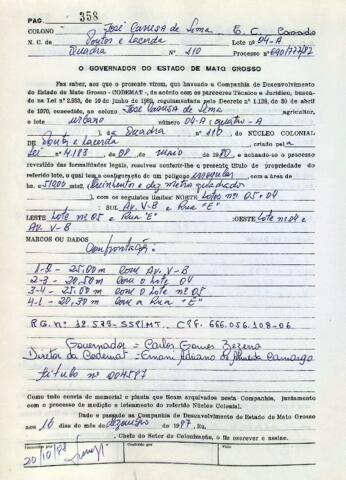 PAG. 358
COLONO José Causa de Lima E. C. Casado
N. C. de Pontes e Lacerda Lote nº 04-A
Quadra Nº 110 Processo nº 690/777/82
O GOVERNADOR DO ESTADO DE MATO GROSSO
Faz saber, aos que o presente virem, que havendo a Companhia de Desenvolvimento
do Estado de Mato Grosso - CODEMAT -, de acordo com os pareceres Técnico e Jurídico, basea-
do na Lei nº 2.883, de 19 de junho de 1969, regulamentada pelo Decreto nº 1.138, de 30 de abril
de 1970, concedido, ao colono José Causa de Lima agricultor,
o lote urbano número 04-A (quatro-A
), da Quadra nº 110, DO NÚCLEO COLONIAL
DE Pontes e Lacerda criado pela
Lei nº 4.183, de 08 de maio de 1980, e achando-se o processo
revestido das formalidades legais, resolveu conferir-lhe o presente título de propriedade do
referido lote, o qual tem a configuração de um polígono irregular com a área de
ha. m2 (Quinhentos e dez metros quadrados
), com os seguintes limites: NORTE Lotes nºs 05 e 04
: SUL Av. V-B e Rua "E"
LESTE Lote nº 05 e Rua "E" :OESTE Lote nº 04 e
Av. V-B
MARCOS OU DADOS
Confrontação:
1-2 - 25,00m Com Av. V-B
2-3 - 20,50m Com o Lote 04
3-4 - 25,00m Com o Lote nº 05
4-1 - 20,30m Com a Rua "E"
R.G. nº 12.573-SSP/MT. CPF. 666.056.108-06
Governador = Carlos Gomes Bezerra
Diretor da Codemat = Ernani Adriano de Almeida Camargo
título nº 004587
Como tudo consta do memorial e planta que ficam arquivados nesta Companhia, juntamente
com o processo de medição e loteamento do referido Núcleo Colonial.
Dado e passado na Companhia de Desenvolvimento do Estado de Mato Grosso
aos 16 dias do mês de dezembro de 1987. Eu,
, Chefe do Setor de Colonização, o fiz escrever e assino.
Transcrito por Conferido por Visto
20/10/88